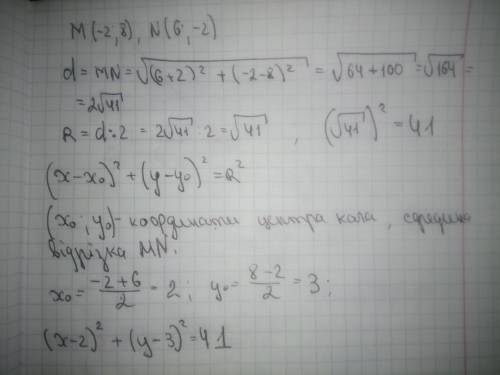 M(-2;8), N(6;-2)
d = MN = √((6+2)² + (-2-8)²) = √(64+100) = √164 =
= 2√41
R = d:2 = 2√41 : 2 = √41 , (√41)² = 41
(x-x₀)² + (y-y₀)² = R²
(x₀; y₀)- координати центра кола, середина
відрізка MN.
x₀ = (-2+6)/2 = 2; y₀ = (8-2)/2 = 3;
(x-2)² + (y-3)² = 41